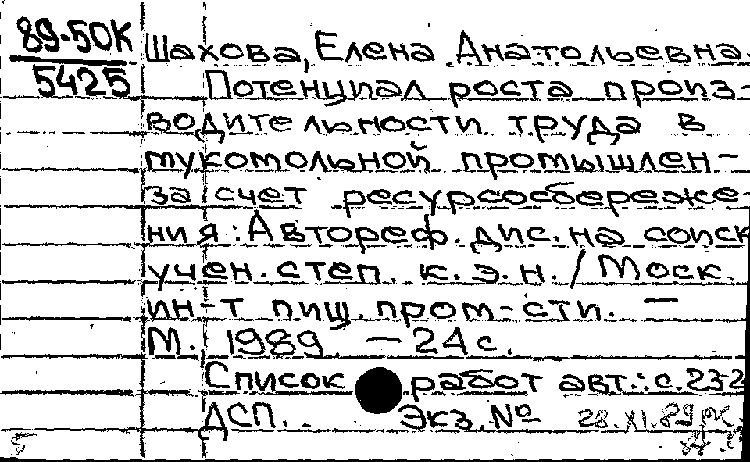 89-50К
5425
Шахова, Елена Анатольевна
Потенциал роста произ-
водительности труда в
мукомольной промышлен-
за счет ресурсосбереже-
ния: Автореф. дис. на соиск
учен. степ. к. э. н. / Моск.
ин-т пищ. пром-сти. —
М. 1989. — 24 с.
Список работ авт.: с. 23-2
ДСП. Экз. №
28.XI.89